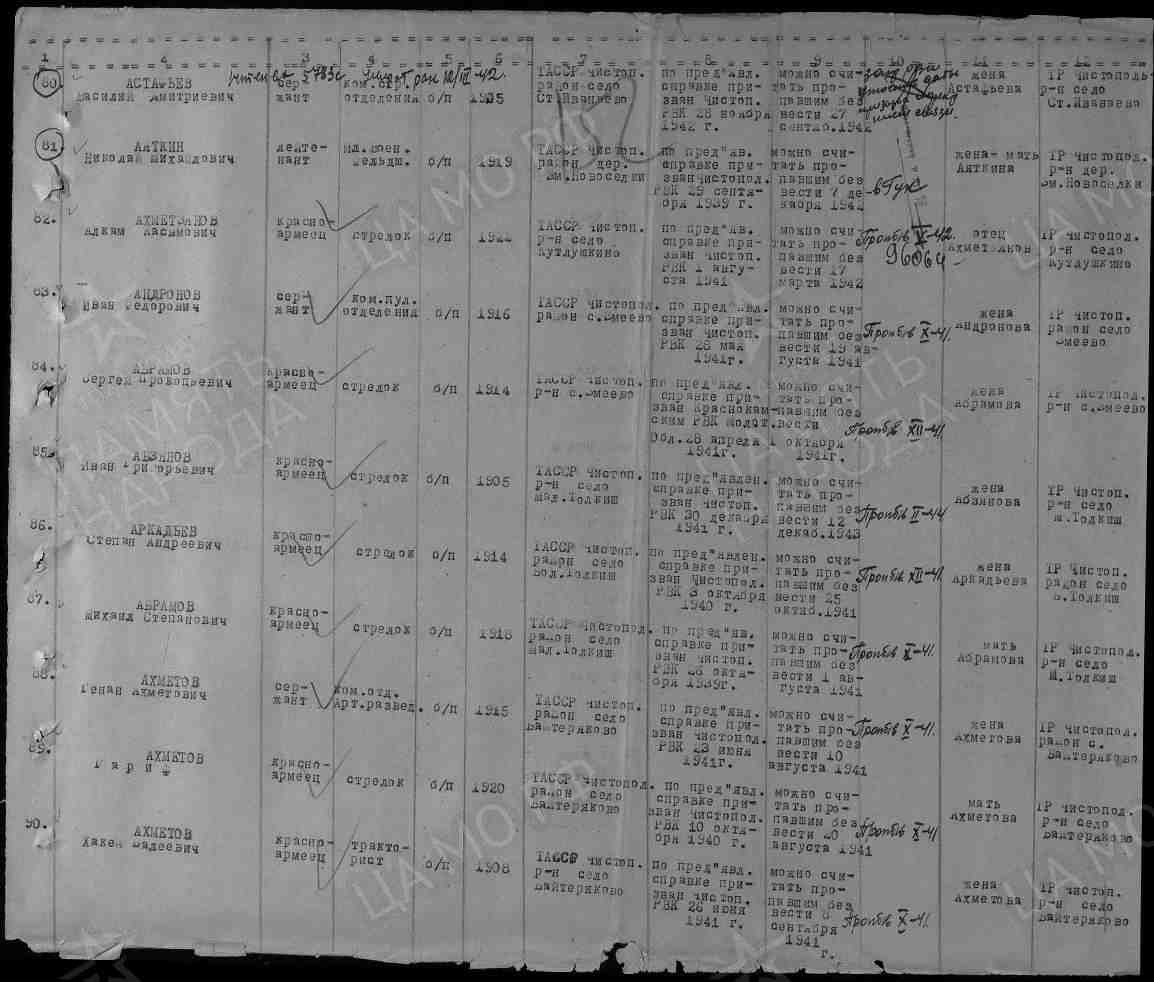 1 2 3 4 5 6 7 8 9 10 11 12
80
АСТАФЬЕВ
Василий Дмитриевич
сер-
жант
ком.стр.
отделения
б/п
1905
ТАССР Чистоп.
район село
Ст.Иванаево
по пред"явл.
справке при-
зван Чистоп.
РВК 28 ноября
1942 г.
можно счи-
тать про-
павшим без
вести 27
сентяб.1942
жена
Астафьева
ТР Чистополь
р-н село
Ст.Иванаево
81
АЯТКИН
Николай Михайлович
лейте-
нант
мл.воен.
фельдш.
б/п
1919
ТАССР Чистоп.
район дер.
Ем.Новоселки
по пред"яв.
справке при-
зван Чистопол.
РВК 29 сентя-
бря 1939 г.
можно счи-
тать про-
павшим без
вести 7 де-
кабря 1942
в Гук
жена- мать
Аяткина
ТР Чистопол.
р-н дер.
Ем.Новоселки
82.
АХМЕТЗЯНОВ
Касымович
красно-
армеец
стрелок
б/п
ТАССР Чистоп.
р-н село
Кутлушкино
по пред"яв.
справке при-
зван Чистоп.
РВК 1 авгу-
ста 1941
можно счи-
тать про-
павшим без
вести 17
марта 1942
96064
отец
Ахметзянов
ТР Чистопол.
р-н село
Кутлушкино
83.
АНДРОНОВ
Иван Федорович
сер-
жант
ком.пул.
отделения
б/п
1916
ТАССР Чистопол.
район с.Змеево
по пред"явл.
справке при-
зван Чистоп.
РВК 28 мая
1941г.
можно счи-
тать про-
павшим без
вести 19 ав-
густа 1941
Проп б/в X-41.
жена
Андронова
ТР Чистоп.
район село
Змеево
84.
АБРАМОВ
Сергей Прокопьевич
красно-
армеец
стрелок
б/п
1914
ТАССР Чистоп.
р-н с.Змеево
по пред"явл.
справке при-
зван Краснокам-
ским РВК Молот.
Обл.28 апреля
1941г.
можно счи-
тать про-
павшим без
вести
1 октября
1941г.
Проп б/в XII-41.
жена
Абрамова
ТР Чистопол.
р-н с.Змеево
85.
АБЗЯНОВ
Иван Григорьевич
красно-
армеец
стрелок
б/п
1905
ТАССР Чистоп.
р-н село
Мал.Толкиш
по пред"явлен.
справке при-
зван Чистоп.
РВК 30 декабря
1941 г.
можно счи-
тать про-
павшим без
вести 12
декаб.1943
Проп б/в II-44
жена
Абзянова
ТР Чистоп.
р-н село
М.Толкиш
86.
АРКАДЬЕВ
Степан Андреевич
красно-
армеец
стрелок
б/п
1914
ТАССР Чистоп.
район село
Бол.Толкиш
по пред"явлен.
справке при-
зван Чистопол.
РВК 3 октября
1940 г.
можно счи-
тать про-
павшим без
вести 25
октяб.1941
Проп б/в XII-41.
жена
Аркадьева
ТР Чистоп.
район село
Б.Толкиш
87.
АБРАМОВ
Михаил Степанович
красно-
армеец
стрелок
б/п
1918
ТАССР Чистопол.
район село
Мал.Толкиш
по пред"яв.
справке при-
зван Чистоп.
РВК 28 октя-
бря 1939г.
можно счи-
тать про-
павшим без
вести 1 ав-
густа 1941
Проп б/в X-41.
мать
Абрамова
ТР Чистопол.
р-н село
М.Толкиш
88.
АХМЕТОВ
Генан Ахметович
сер-
жант
ком.отд.
Арт.развед.
б/п
1915
ТАССР Чистоп.
район село
Байтеряково
по пред"явл.
справке при-
зван Чистопол.
РВК 23 июня
1941г.
можно счи-
тать про-
павшим без
вести 10
августа 1941
Проп б/в X-41.
жена
Ахметова
ТР Чистопол.
район с.
Байтеряково
89.
АХМЕТОВ
Г а р и ф
красно-
армеец
стрелок
б/п
1920
ТАССР Чистопол.
район село
Байтеряково
по пред"явл.
справке при-
зван Чистопол.
РВК 10 октя-
бря 1940 г.
можно счи-
тать про-
павшим без
вести 20
августа 1941
Проп б/в X-41
мать
Ахметова
ТР Чистопол.
р-н село
Байтеряково
90.
АХМЕТОВ
Хакем Вадеевич
красно-
армеец
тракто-
рист
б/п
1908
ТАССР Чистоп.
р-н село
Байтеряково
по пред"явл.
справке при-
зван Чистоп.
РВК 28 июня
1941 г.
можно счи-
тать про-
павшим без
вести 8
сентября
1941
г.
Проп б/в X-41.
жена
Ахметова
ТР Чистоп.
р-н село
Байтеряково